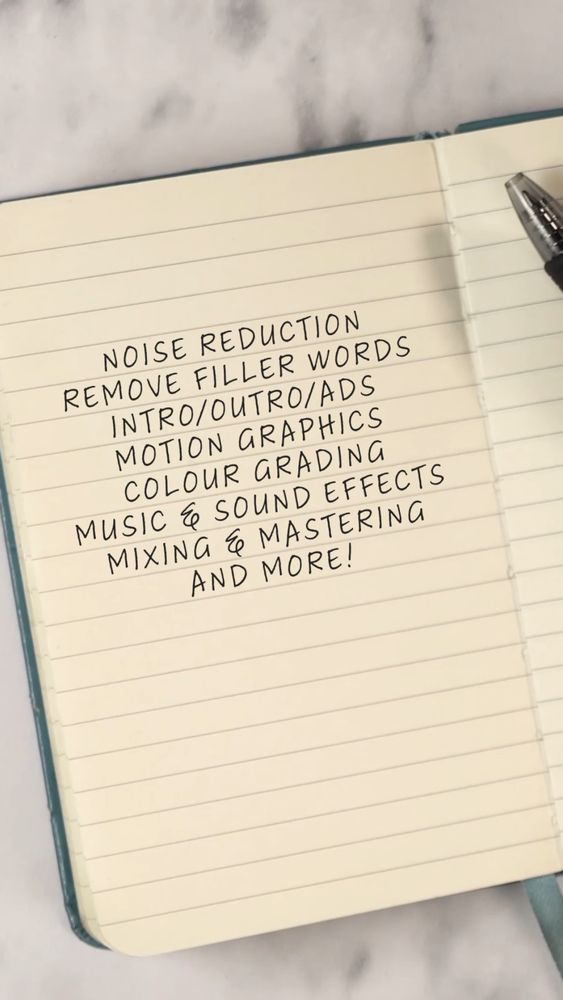 NOISE REDUCTION
REMOVE FILLER WORDS
INTRO/OUTRO/ADS
MOTION GRAPHICS
COLOUR GRADING
MUSIC & SOUND EFFECTS
MIXING & MASTERING
AND MORE!